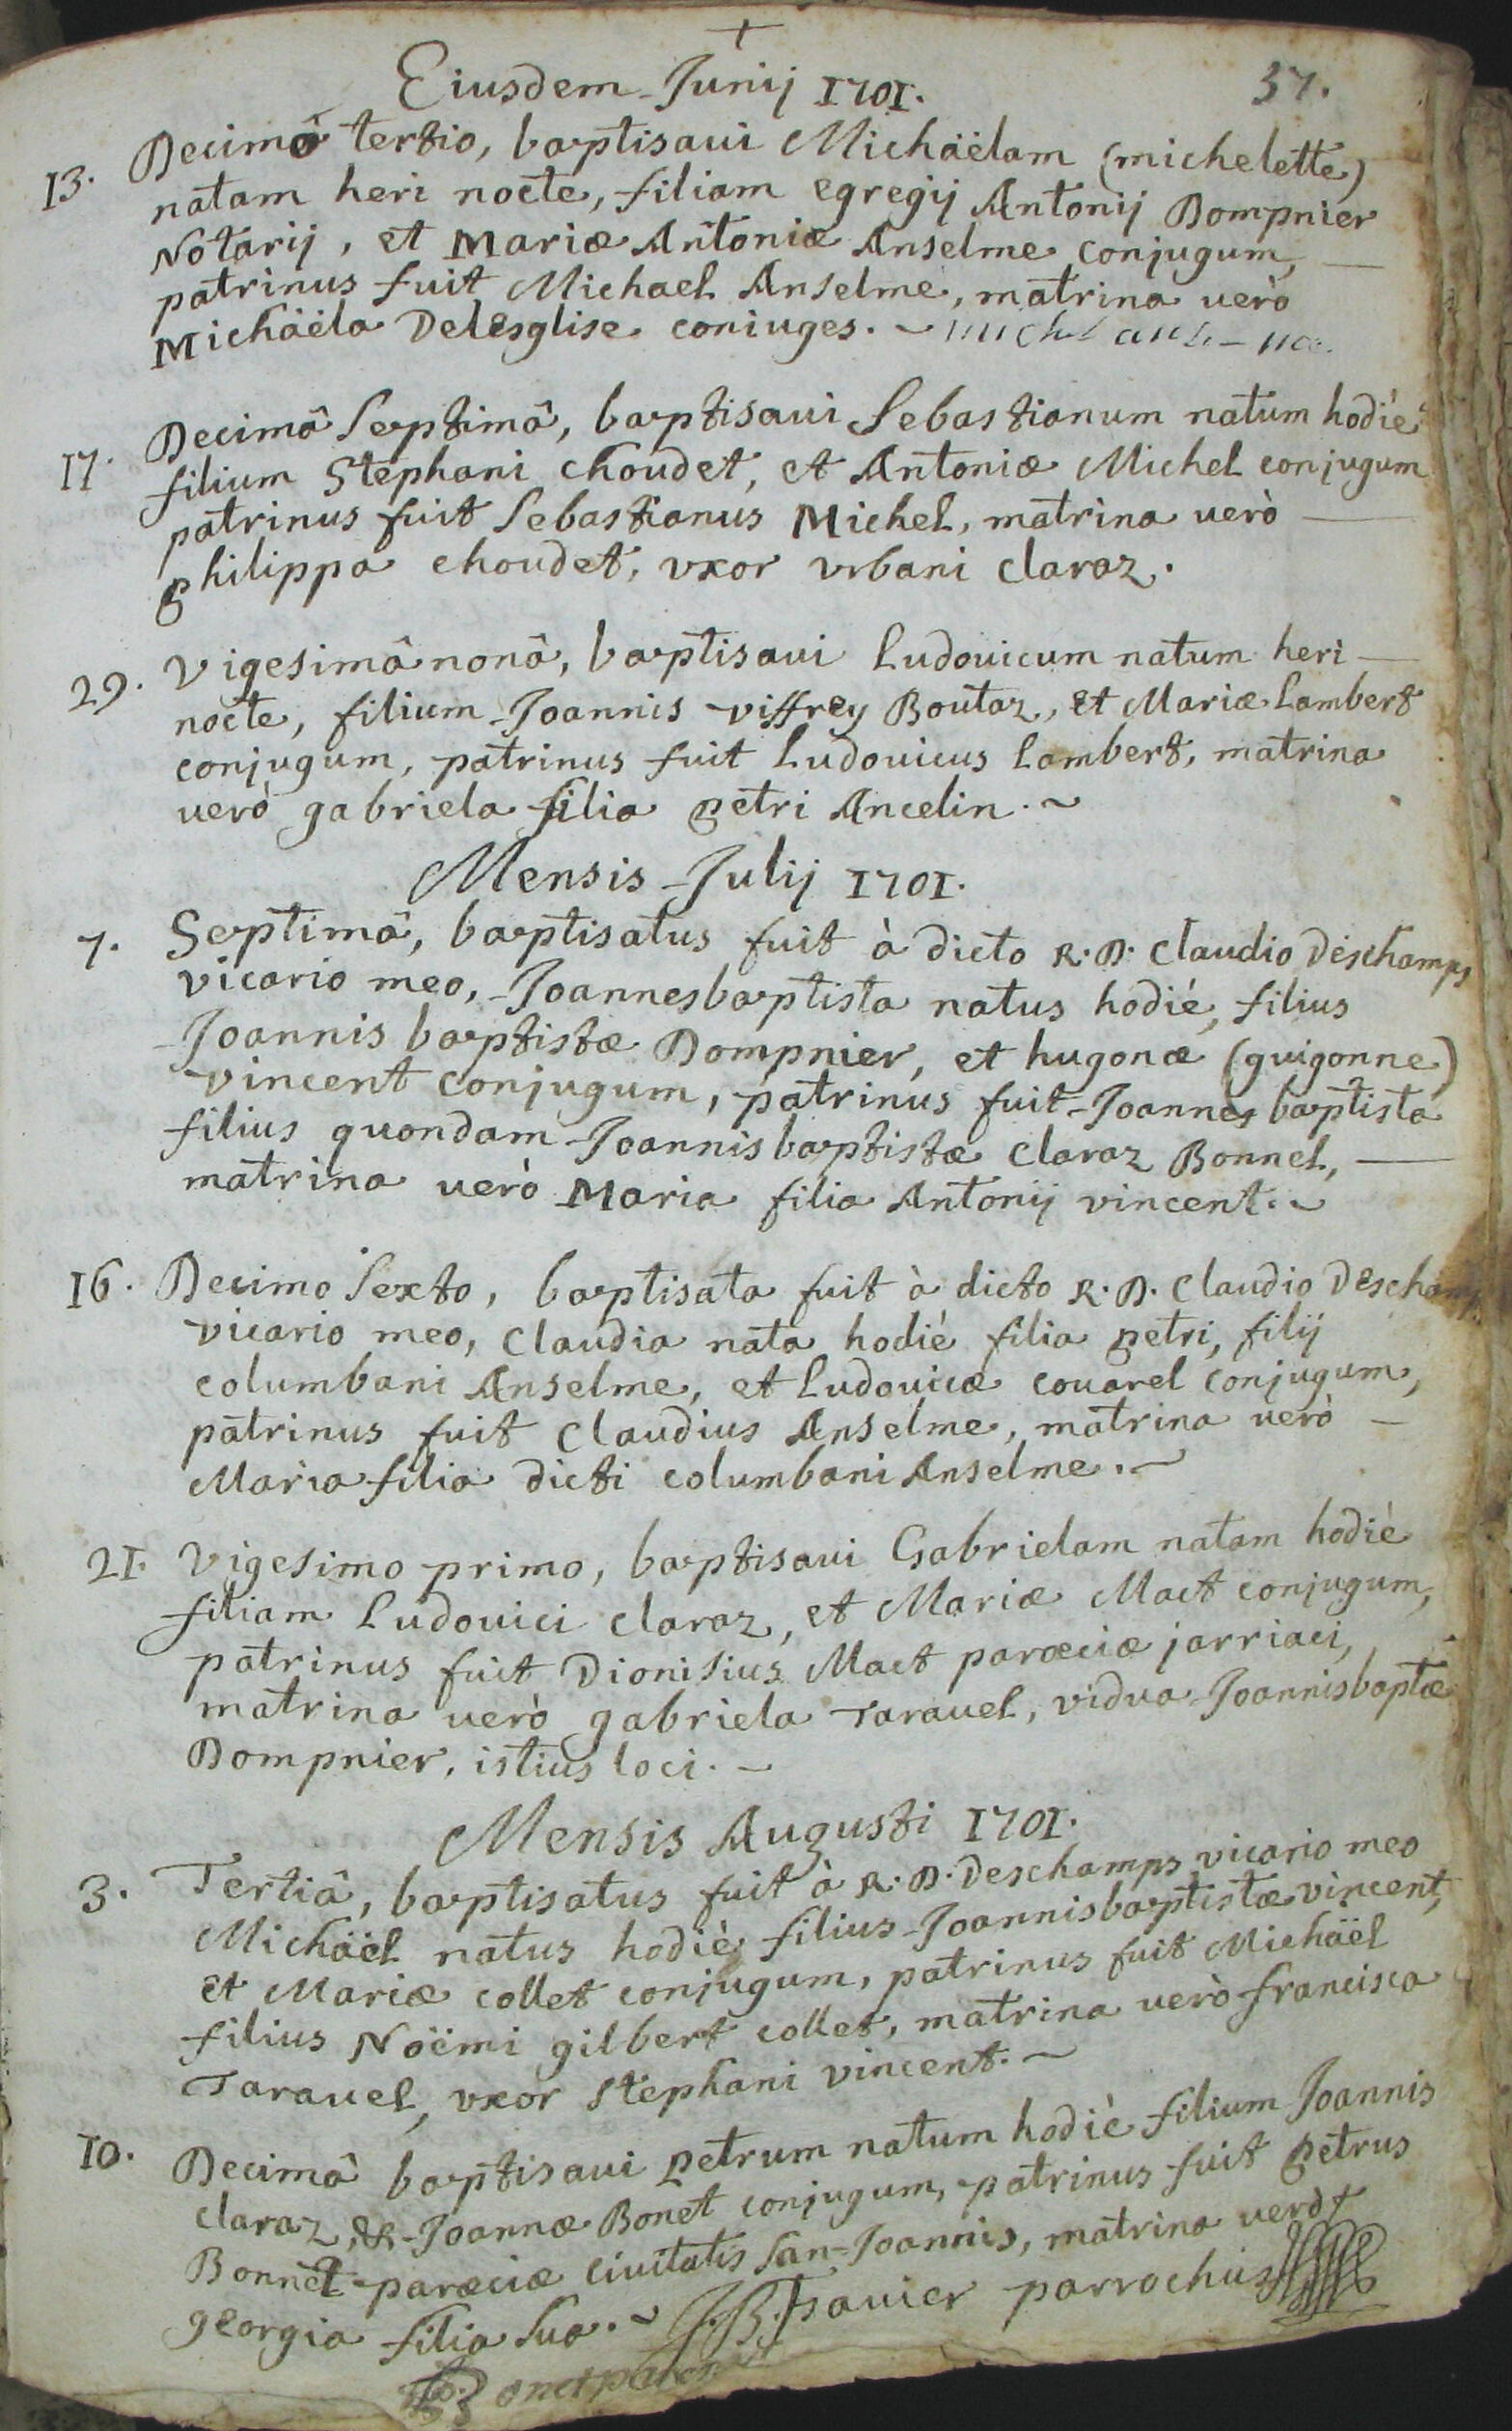 +
Eiusdem Junij 1701.
37.
13. Decimô tertio, baptisaui Michäëlam (michelette)
natam heri nocte, filiam egregij Antonij Dompnier
Notarij, et Mariæ Antoniæ Anselme conjugum,
patrinus fuit Michael Anselme, matrina uerò
Michäëla Delesglise coniuges.
17. Decimâ Septimâ, baptisaui Sebastianum natum hodiè
filium Stephani choudet, et Antoniæ Michel conjugum
patrinus fuit Sebastianus Michel, matrina uerò
philippa choudet, vxor vrbani claraz.
29. Vigesimâ nonâ, baptisaui Ludouicum natum heri
nocte, filium Joannis viffrey Boutaz, et Mariæ Lambert
conjugum, patrinus fuit Ludouicus Lambert, matrina
uerò gabriela filia petri Ancelin.
Mensis Julij 1701.
7. Septimâ, baptisatus fuit à dicto R.D. claudio deschamps
vicario meo, Joannesbaptista natus hodiè, filius
Joannis baptistæ Dompnier, et hugonæ (guigonne)
vincent conjugum, patrinus fuit Joannes baptista
filius quondam Joannis baptistæ claraz Bonnel,
matrina uerò Maria filia Antonij vincent.
16. Decimo Sexto, baptisata fuit à dicto R.D. claudio Deschamps
vicario meo, claudia nata hodiè filia petri, filij
columbani Anselme, et Ludouicæ couarel conjugum,
patrinus fuit claudius Anselme, matrina uerò
Maria filia dicti columbani Anselme.
21. Vigesimo primo, baptisaui Gabrielam natam hodiè
filiam Ludouici claraz, et Mariæ Maet conjugum,
patrinus fuit Dionisius Maet parœciæ jarriaci,
matrina uerò gabriela Tarauel, vidua Joannisbaptæ
Dompnier, istius loci.
Mensis Augusti 1701.
3. Tertiâ, baptisatus fuit à R.D. Deschamps vicario meo
Michäël natus hodiè, filius Joannisbaptistæ vincent,
et Mariæ collet conjugum, patrinus fuit Michäël
filius Nöëmi gilbert collet, matrina uerò francisca
Tarauel, vxor Stephani vincent.
10. Decimâ baptisaui petrum natum hodiè filium Joannis
claraz, & Joannæ Bonet conjugum, patrinus fuit petrus
Bonnet parœciæ ciuitatis San-Joannis, matrina uerò
georgia filia sua. parrochus